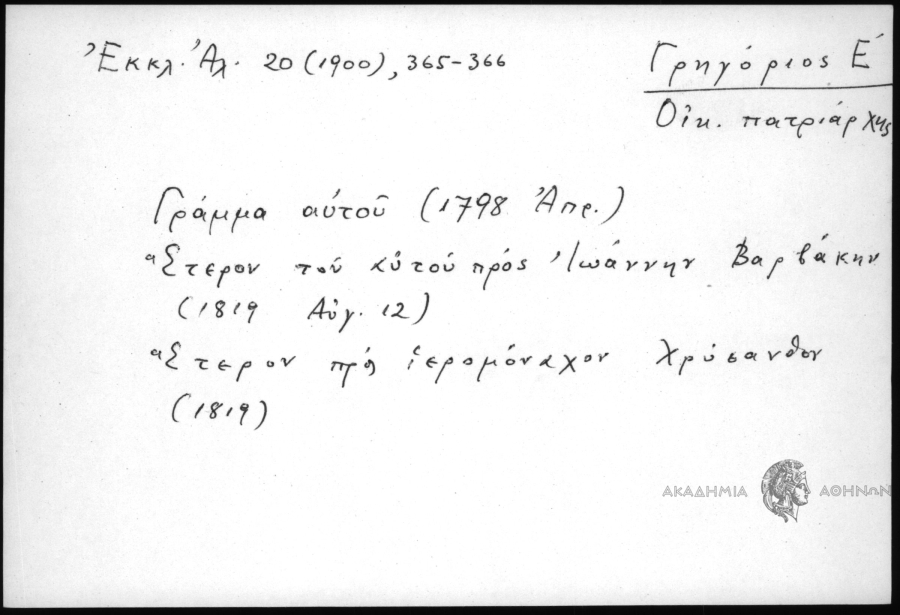 Ἐκκλ. Ἀλ. 20 (1900), 365-366
Γρηγόριος Ε΄
Οἰκ. πατριάρχης
Γράμμα αὐτοῦ (1798 Ἀπρ.)
Ἕτερον τοῦ αὐτοῦ πρός Ἰωάννην Βαρβάκην
(1819 Αὐγ. 12)
Ἕτερον πρός ἱερομόναχον Χρύσανθον
(1819)
ΑΚΑΔΗΜΙΑ ΑΘΗΝΩΝ